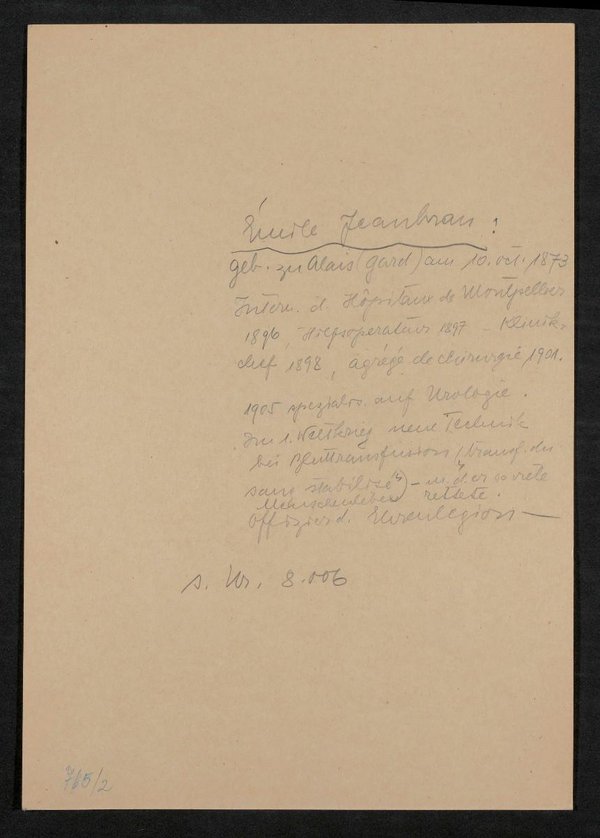 Émile Jeanbrau :
geb. zu Alais (Gard) am 10. oct. 1873
Intern. d. Hôpitaux de Montpellier
1896, Hilfsoperateur 1897 Klinik-
chef 1898, agrégé de chirurgie 1901.
1905 spezialis. auf Urologie.
Im 1. Weltkrieg neue Technik
bei Bluttransfusion (transf. du
sang stabilisé") – m. d. er so viele
Menschenleben rettete.
Offizier d. Ehrenlegion —
s. Nr. 8.006
765/2